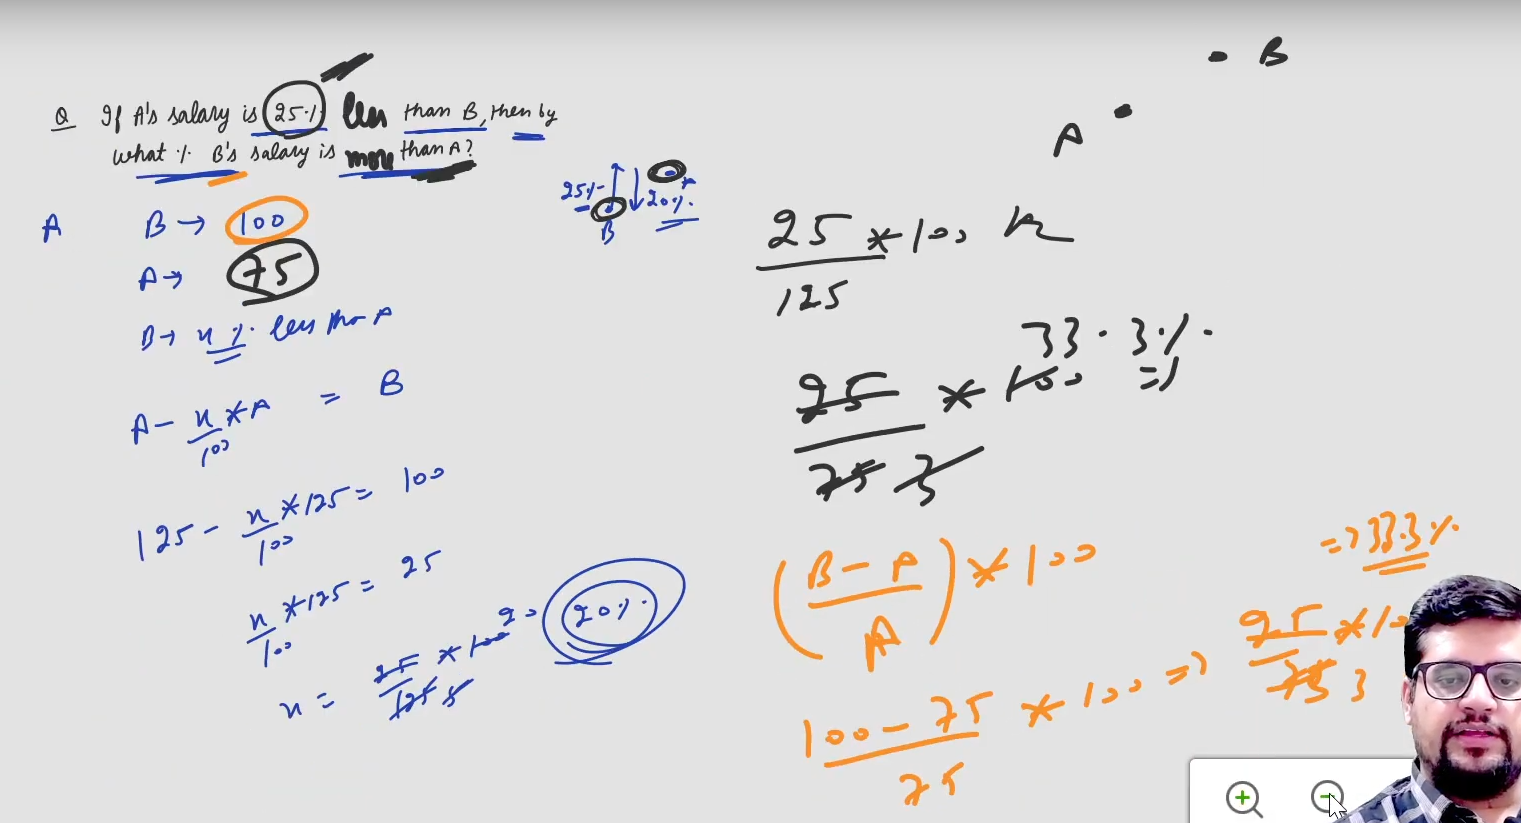 Q If A's salary is 25% less than B, then by
what % B's salary is more than A?
25%
20%
B
A
B → 100
A → 75
B → x % less than A
A - x/100 * A = B
125 - x/100 * 125 = 100
x/100 * 125 = 25
x = 25/125 5 * 100 20 20%
B
A
25/125 * 100
33.3%
25/75 3 * 100 =>
(B - A / A) * 100
100 - 75 / 75 * 100 => 25/75 3 * 10
=> 33.3%